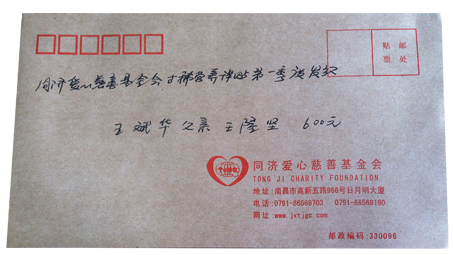 贴 邮
票 处
同济爱心慈善基金会 第一季度
王斌华 父亲 王隆坚 600元
同济爱心慈善基金会
TONG JI CHARITY FOUNDATION
地址:南昌市高新五路966号日月明大厦
电话:0791-86569703 0791-86569190
网址:www.jxtjgc.com
邮政编码:330096